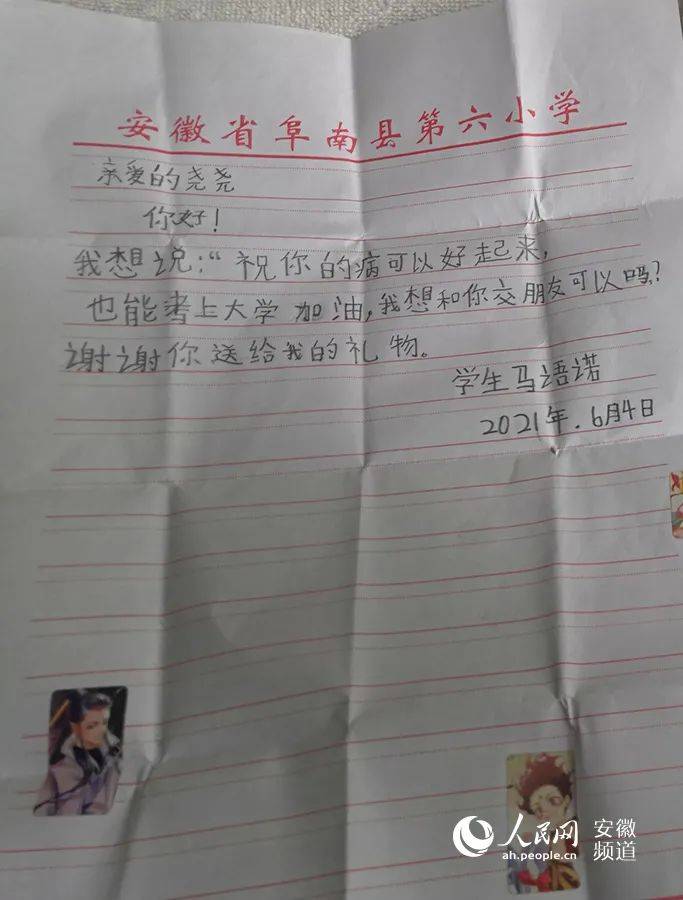 安徽省阜南县第六小学
亲爱的尧尧
你好！
我想说：“祝你的病可以好起来，
也能考上大学加油，我想和你交朋友可以吗？
谢谢你送给我的礼物。
学生马语诺
2021年.6月4日
人民网
ah.people.cn
安徽
频道